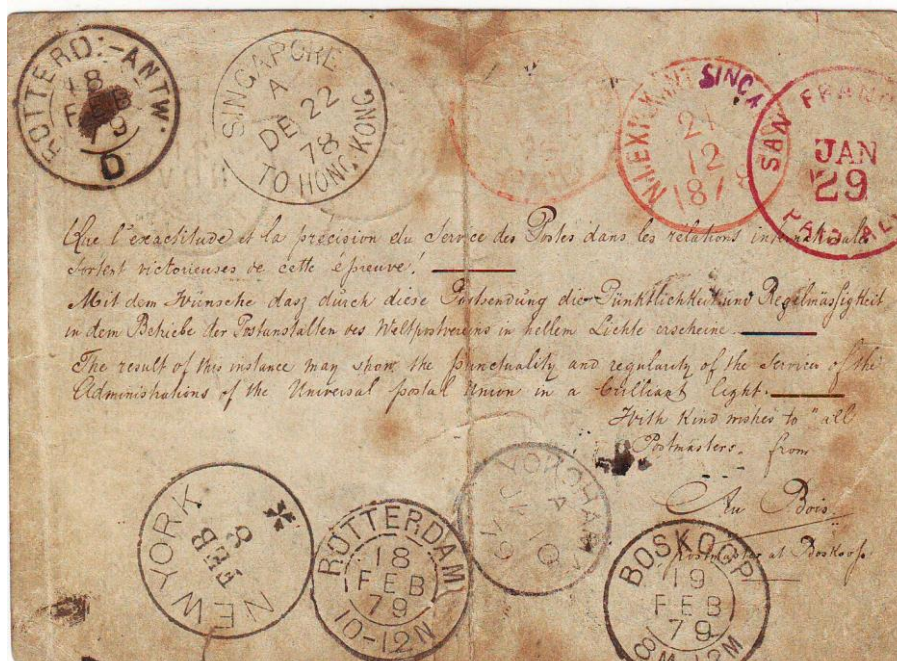 ROTTERD:-ANTW:
18
FEB
79
D
SINGAPORE
A
DE 22
78
TO HONG KONG
SINGA
N.I.
21
12
187
SAN FRANC
JAN
29
PAID ALL
Que l'exactitude et la précision du Service des Postes dans les relations internationales
sortent victorieuses de cette épreuve!
Mit dem Wünsche dasz durch diese Postsendung die Pünktlichkeit und Regelmässigkeit
in dem Betriebe der Postanstalten des Weltpostvereins in hellem Lichte erscheine.
The result of this instance may show the punctuality and regularity of the Service of the
Administrations of the Universal postal Union in a brilliant light.
With kind wishes to "all
Postmasters. from
Au Bois.
Postmaster at Boskoop
NEW YORK
FEB
8
YOKOHAMA
A
JA
10
79
ROTTERDAM
18
FEB
79
10-12N
BOSKOOP
19
FEB
79
8M-12M